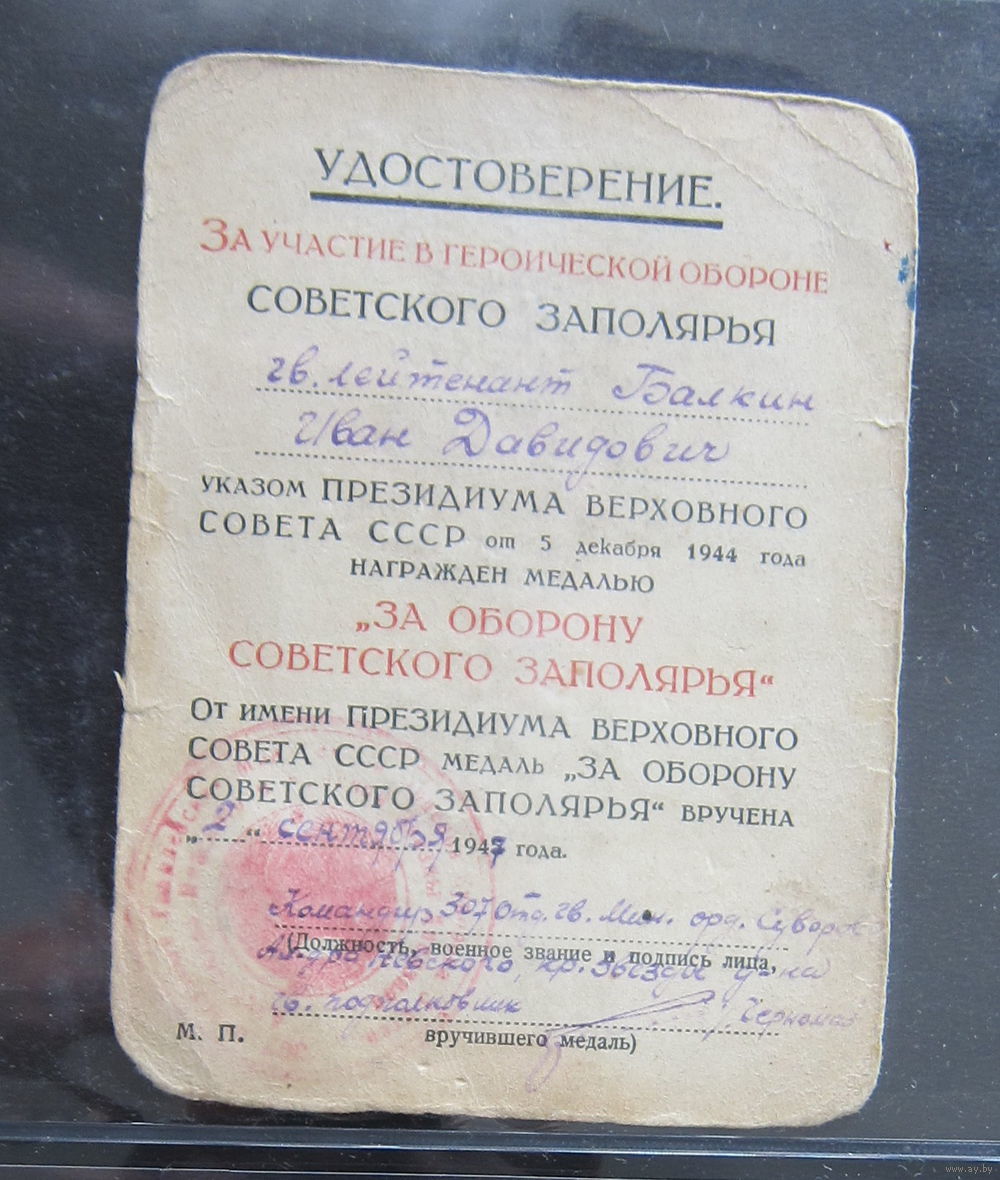 УДОСТОВЕРЕНИЕ.
ЗА УЧАСТИЕ В ГЕРОИЧЕСКОЙ ОБОРОНЕ
СОВЕТСКОГО ЗАПОЛЯРЬЯ
гв. лейтенант Балкин
Иван Давидович
УКАЗОМ ПРЕЗИДИУМА ВЕРХОВНОГО
СОВЕТА СССР от 5 декабря 1944 года
НАГРАЖДЕН МЕДАЛЬЮ
„ЗА ОБОРОНУ
СОВЕТСКОГО ЗАПОЛЯРЬЯ“
ОТ ИМЕНИ ПРЕЗИДИУМА ВЕРХОВНОГО
СОВЕТА СССР МЕДАЛЬ „ЗА ОБОРОНУ
СОВЕТСКОГО ЗАПОЛЯРЬЯ“ ВРУЧЕНА
„2“ сентября 1947 года.
Командир 307 отд. гв. Мин. орд.
(Должность, военное звание и подпись лица,
кр. Звезды д-на
гв. подполковник
М. П. вручившего медаль)
www.ay.by